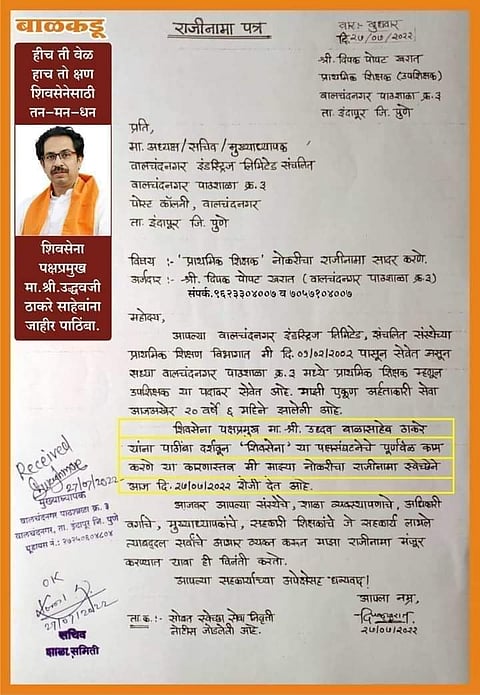 बाळकडू
हीच ती वेळ
हाच तो क्षण
शिवसेनेसाठी
तन-मन-धन
शिवसेना
पक्षप्रमुख
मा.श्री.उद्धवजी
ठाकरे साहेबांना
जाहीर पाठिंबा.
राजीनामा पत्र
वार:- बुधवार
दि.२७/०७/२०२२
श्री. दिपक पोपट खरात
प्राथमिक शिक्षक (उपशिक्षक)
वालचंदनगर पाठशाळा क्र.३
ता. इंदापूर जि. पुणे
प्रति,
मा. अध्यक्ष/सचिव/मुख्याध्यापक
वालचंदनगर इंडस्ट्रिज लिमिटेड संचलित
वालचंदनगर पाठशाळा क्र.३
पोस्ट कॉलनी, वालचंदनगर
ता. इंदापूर जि. पुणे
विषय :- 'प्राथमिक शिक्षक' नोकरीचा राजीनामा सादर करणे.
अर्जदार :- श्री. दिपक पोपट खरात (वालचंदनगर पाठशाळा क्र.३)
संपर्क.९६२३३०४००७ व ७०५७१०४००७
महोदय,
आपल्या वालचंदनगर इंडस्ट्रिज लिमिटेड, संचलित संस्थेच्या
प्राथमिक शिक्षण विभागात मी दि.०१/०२/२००२ पासून सेवेत असून
सध्या वालचंदनगर पाठशाळा क्र.३ मध्ये प्राथमिक शिक्षक म्हणून
उपशिक्षक या पदावर सेवेत आहे. माझी एकूण अर्हताकारी सेवा
आजअखेर २० वर्षे ६ महिने झालेली आहे.
शिवसेना पक्षप्रमुख मा.श्री. उद्धव बाळासाहेब ठाकरे
यांना पाठींबा दर्शवून 'शिवसेना' या पक्षसंघटनेचे पूर्णवेळ काम
करणे या कारणास्तव मी माझ्या नोकरीचा राजीनामा स्वेच्छेने
आज दि.२७/०७/२०२२ रोजी देत आहे.
आजवर आपल्या संस्थेचे, शाळा व्यवस्थापणाचे, अधिकारी
वर्गाचे, मुख्याध्यापकांचे, सहकारी शिक्षकांचे जे सहकार्य लाभले
त्याबद्दल सर्वांचे आभार व्यक्त करून माझा राजीनामा मंजूर
करण्यात यावा ही विनंती करतो.
आपल्या सहकार्याच्या अपेक्षेसह धन्यवाद!
आपला नम्र,
ता.क.:- सोबत स्वेच्छा सेवा निवृत्ती
नोटीस जोडलेली आहे.
२७/०७/२०२२
Received
27/07/2022
मुख्याध्यापक
वालचंदनगर पाठशाळा क्र.३
वालचंदनगर, ता. इंदापूर, जि. पुणे
OK
27/07/2022
सचिव
शाळा समिती